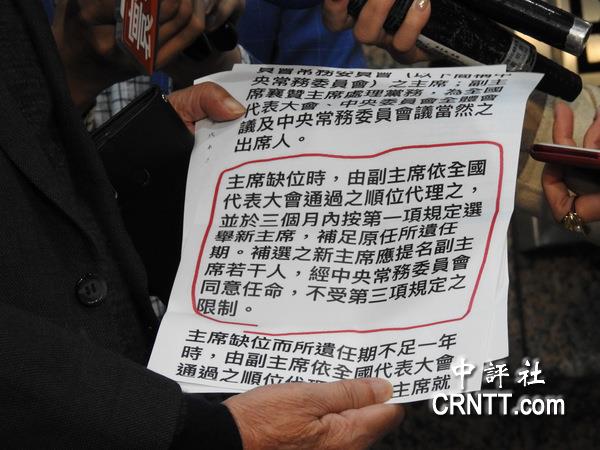 員會常務委員會（以下簡稱中
央常務委員會）之主席；副主
席襄贊主席處理黨務，為全國
代表大會、中央委員會全體會
議及中央常務委員會議當然之
出席人。
主席缺位時，由副主席依全國
代表大會通過之順位代理之，
並於三個月內按第一項規定選
舉新主席，補足原任所遺任
期。補選之新主席應提名副主
席若干人，經中央常務委員會
同意任命，不受第三項規定之
限制。
主席缺位而所遺任期不足一年
時，由副主席依全國代表大會
通過之順位代理
主席就
中評社
CRNTT.com